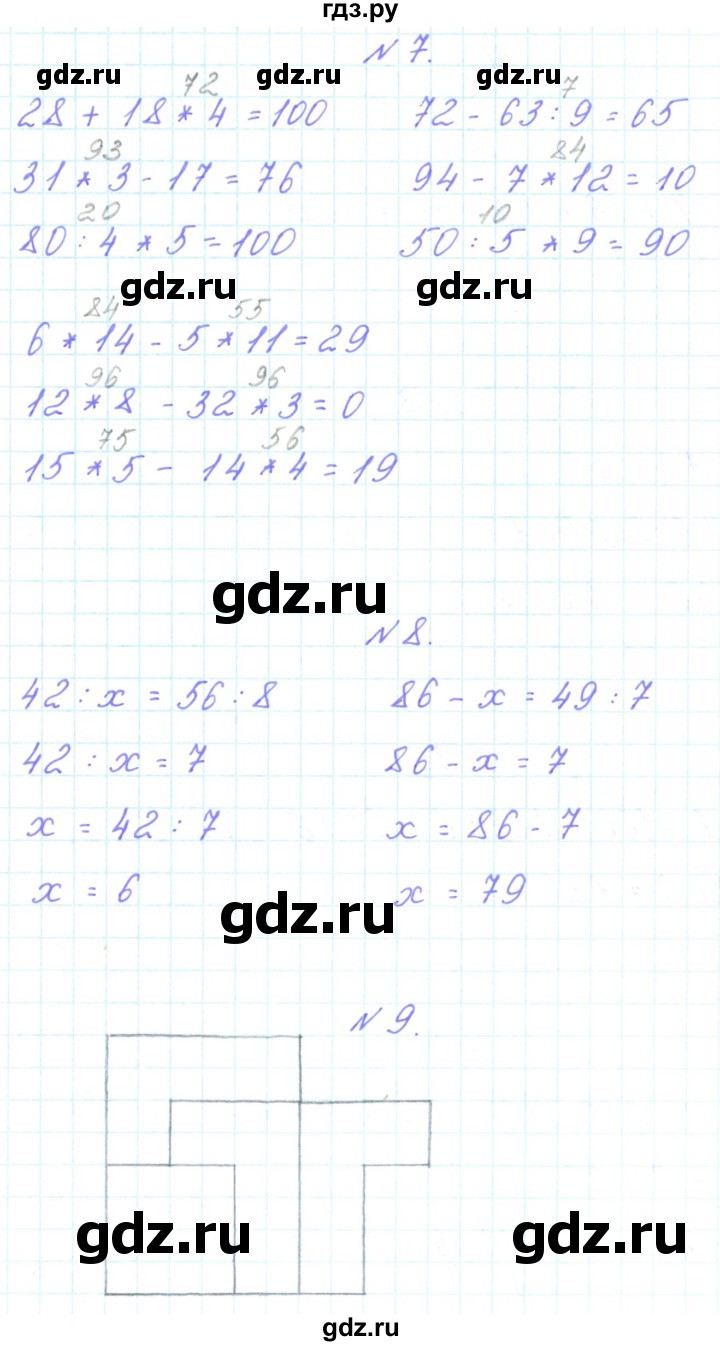 гдз.ру
N 7.
gdz.ru gdz.ru gdz.ru
72 7
28 + 18 * 4 = 100 72 - 63 : 9 = 65
93 84
31 * 3 - 17 = 76 94 - 7 * 12 = 10
20 10
80 : 4 * 5 = 100 50 : 5 * 9 = 90
gdz.ru gdz.ru
84 55
6 * 14 - 5 * 11 = 29
96 96
12 * 8 - 32 * 3 = 0
75 56
15 * 5 - 14 * 4 = 19
gdz.ru
N 8.
42 : x = 56 : 8 86 - x = 49 : 7
42 : x = 7 86 - x = 7
x = 42 : 7 x = 86 - 7
x = 6 x = 79
gdz.ru
N 9.
gdz.ru gdz.ru
gdz.ru